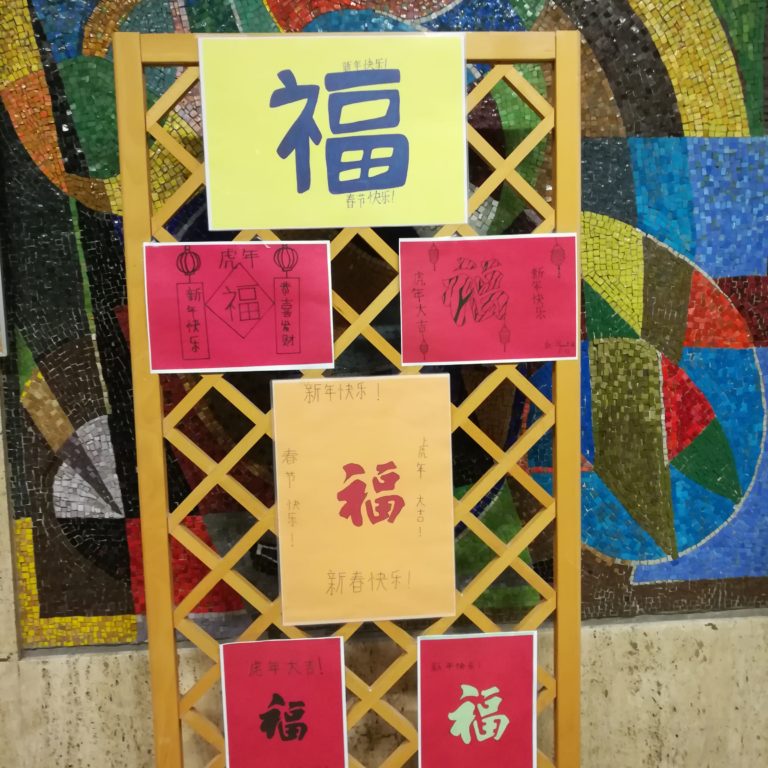 新年快乐!
福
春节快乐!
虎年
新年快乐
福
恭喜发财
虎年大吉
福
新年快乐!
新年快乐!
春节快乐!
福
虎年大吉!
新春快乐!
虎年大吉!
福
新年快乐!
福